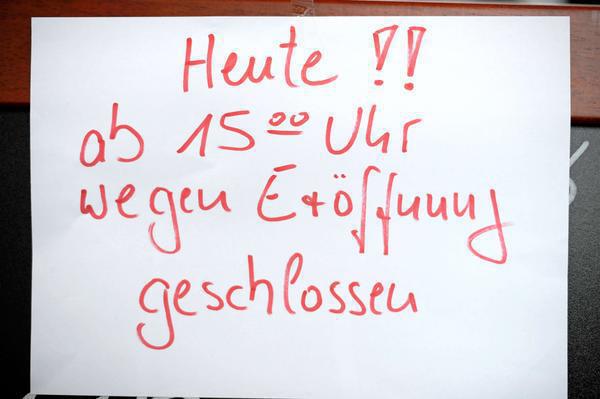 Heute !!
ab 15⁰⁰ Uhr
wegen Eröffnung
geschlossen